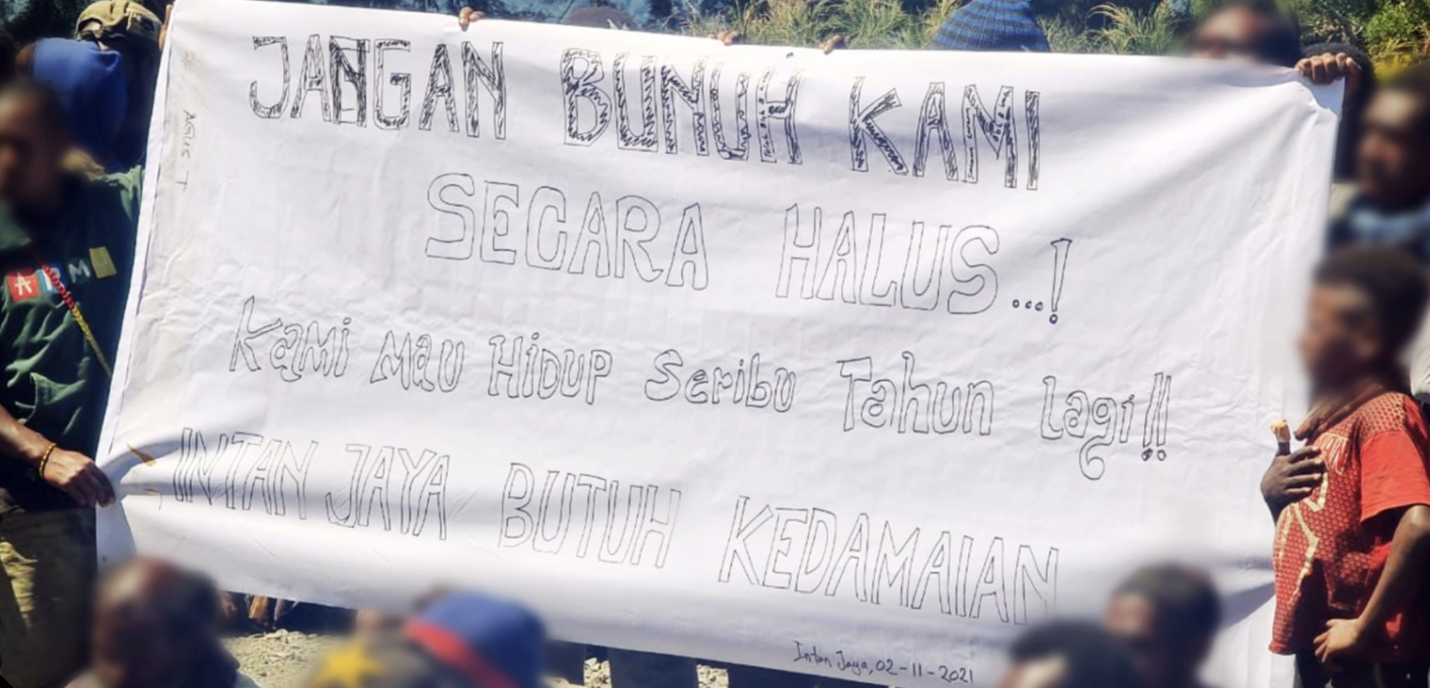 JANGAN BUNUH KAMI
SECARA HALUS...!
Kami Mau Hidup Seribu Tahun Lagi!!
INTAN JAYA BUTUH KEDAMAIAN
Intan Jaya, 02-11-2021
AGUS T